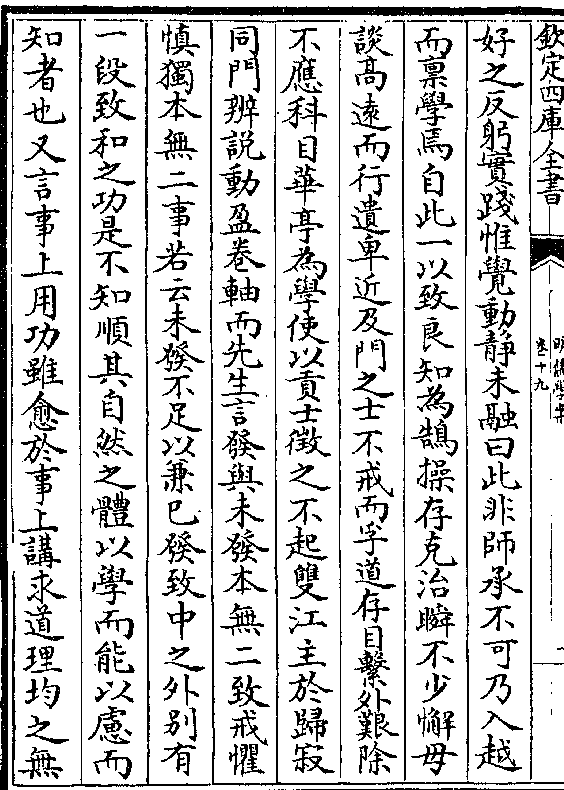 欽定四庫全書
卷十九
好之反躬實踐惟覺動靜未融曰此非師承不可乃入越
而稟學焉自此一以致良知為鵠操存克治瞬不少懈毋
談髙遠而行遺卑近及門之士不戒而孚道存目繫外艱除
不應科目華亭為學使以貢士徵之不起雙江主於歸寂
同門辨説動盈卷軸而先生言發與未發本無二致戒懼
慎獨本無二事若云未發不足以兼已發致中之外别有
一段致和之功是不知順其自然之體以學而能以慮而
知者也又言事上用功雖愈於事上講求道理均之無